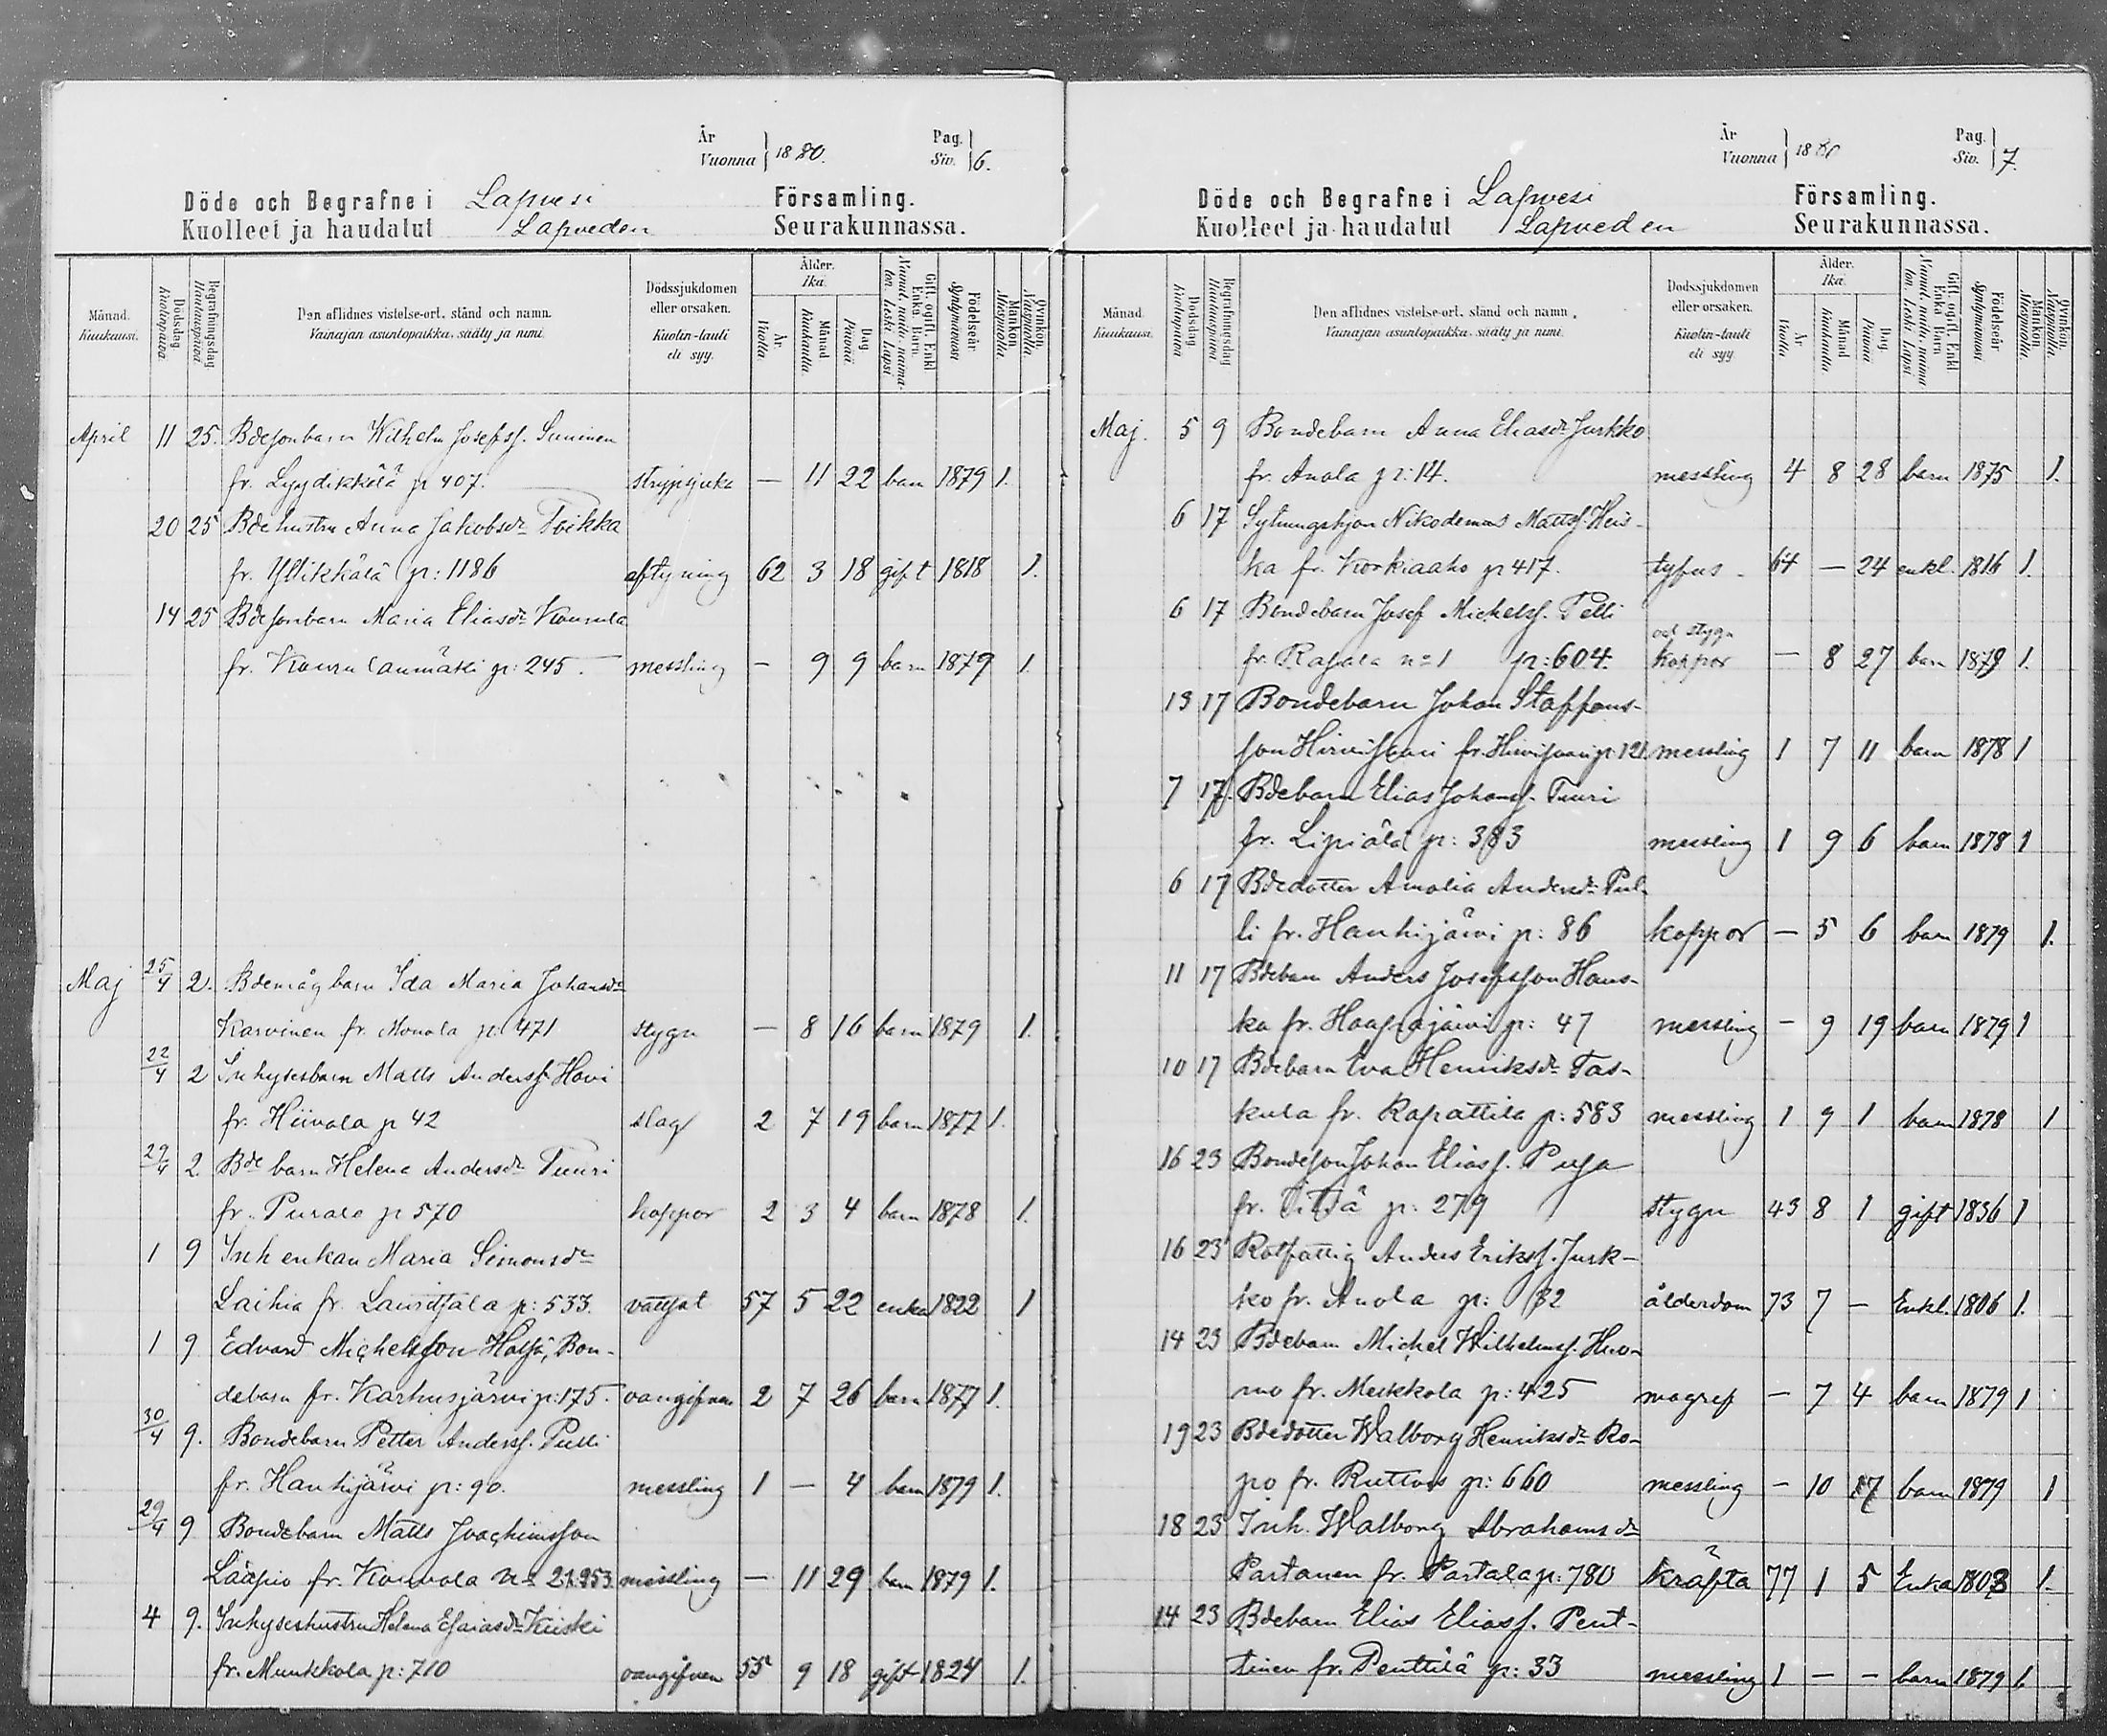 År
Vuonna } 1880.
Pag.
Siv. } 6.
Döde och Begrafne i Lapvesi Församling.
Kuolleet ja haudatut Lapveden Seurakunnassa.
Månad. Kuukausi.
Dödsdag. Kuolinpäivä.
Begrafningsdag. Hautauspäivä.
Den aflidnes vistelse-ort, stånd och namn.
Vainajan asuntopaikka, sääty ja nimi.
Dödssjukdomen eller orsaken.
Kuolin-tauti eli syy.
Ålder. Ikä.
År. Vuotta.
Månad. Kuukautta.
Dag. Päivää.
Gift, ogift, Enkl. Enka, Barn.
Nainut, naitu, naimaton, Leski, Lapsi.
Födelseår. Syntymävuosi.
Mankön. Miespuolta.
Qvinkön. Vaispuolta.
April 11 25. Bdesonbarn Wilhelm Josefss. Suninen
fr. Lyydikkälä p 407. strypsjuka — 11 22 barn 1879 1.
20 25 Bdehustru Anna Jakobsdr Toikka
fr. Yllikkälä p: 1186 aftyning 62 3 18 gift 1818 1.
14 25 Bdesonbarn Maria Eliasdr Kourula
fr. Kourulanmäki p: 245. messling — 9 9 barn 1879 1.
Maj 25/4 2. Bdemågbarn Ida Maria Johansdr
Karvinen fr. Monola p: 471 stygn — 8 16 barn 1879 1.
22/4 2 Inhysesbarn Matts Anderss. Hovi
fr. Hiivala p 42 slag 2 7 19 barn 1877 1.
29/4 2. Bde barn Helena Andersdr Tuuri
fr. Purala p 570 koppor 2 3 4 barn 1878 1.
1 9 Inh enkan Maria Simonsdr
Laihia fr. Lauritsala p: 533. vattsot 57 5 22 enka 1822 1
1 9 Edvard Michelsson Halsi, Bon-
debarn fr. Karhusjärvi p: 175. oangifven 2 7 26 barn 1877 1.
30/4 9. Bondebarn Petter Anderss. Pulli
fr. Hanhijärvi p: 90. messling 1 — 4 barn 1879 1.
29/4 9 Bondebarn Matts Joachimsson
Lääpio fr. Kourola No 2 p. 253 messling — 11 29 barn 1879 1.
4 9. Inhyseshustru Helena Esaiasdr Kiiski
fr. Munkkola p: 710 oangifven 55 9 18 gift 1824 1.
År
Vuonna } 1880
Pag.
Siv. } 7.
Döde och Begrafne i Lapvesi Församling.
Kuolleet ja haudatut Lapveden Seurakunnassa.
Månad. Kuukausi.
Dödsdag. Kuolinpäivä.
Begrafningsdag. Hautauspäivä.
Den aflidnes vistelse-ort, stånd och namn.
Vainajan asuntopaikka, sääty ja nimi.
Dödssjukdomen eller orsaken.
Kuolin-tauti eli syy.
Ålder. Ikä.
År. Vuotta.
Månad. Kuukautta.
Dag. Päivää.
Gift, ogift, Enkl. Enka, Barn
Nainut, naitu, naimaton, Leski, Lapsi.
Födelseår. Syntymävuosi.
Mankön. Miespuolta.
Qvinkön. Vaispuolta.
Maj. 5 9 Bondebarn Anna Eliasdr Jurkko
fr. Anola p: 14. messling 4 8 28 barn 1875 1.
6 17 Sytningshjon Nikodemus Mattss. Heis-
ka fr. Korkiaaho p 417. typus 64 — 24 enkl. 1816 1.
6 17 Bondebarn Josef Michelss. Pelli
fr. Rapala No 1 p: 604. och stygn koppor — 8 27 barn 1879 1.
13 17 Bondebarn Johan Staffans-
son Hirvisaari fr. Hirvisaari p: 121. messling 1 7 11 barn 1878 1
7 17. Bdebarn Elias Johanss. Tuuri
fr. Lipiälä p: 383 messling 1 9 6 barn 1878 1
6 17 Bdedotter Amalia Andersdr Pul-
li fr. Hanhijärvi p: 86 koppor — 5 6 barn 1879 1.
11 17 Bdebarn Anders Josefsson Hans-
ka fr. Haapajärvi p: 47 messling — 9 19 barn 1879 1
10 17 Bdebarn Eva Henriksdr Tas-
kula fr. Rapattila p: 583 messling 1 9 1 barn 1878 1
16 23 Bondeson Johan Eliass. Pusa
fr. Iitiä p: 279 stygn 43 8 1 gift 1836 1
16 23 Rotfattig Anders Erikss. Jurk-
ko fr. Anola p: 32 ålderdom 73 7 — Enkl. 1806 1.
14 23 Bdebarn Michel Wilhelmss. Huo-
mo fr. Meikkola p: 425 magref — 7 4 barn 1879 1
19 23 Bdedotter Walborg Henriksdr Ro-
po fr. Ruttois p: 660 messling — 10 17 barn 1879 1
18 23 Inh. Walborg Abrahamsdr
Partanen fr. Partala p: 780 kräfta 77 1 5 Enka 1803 1.
14 23 Bdebarn Elias Eliass. Pent-
tinen fr. Penttilä p: 33 messling 1 — — barn 1879 1.